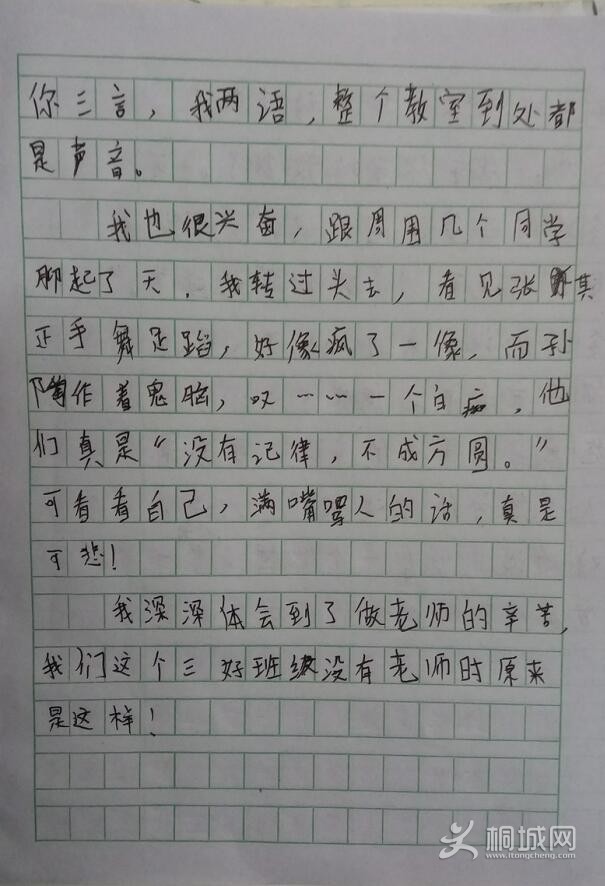 你三言，我两语，整个教室到处都
是声音。
我也很兴奋，跟周围几个同学
聊起了天．我转过头去，看见张其
正手舞足蹈，好像疯了一像，而孙
陶作着鬼脸，哎……一个白痴．他
们真是“没有记律，不成方圆。”
可看看自己，满嘴骂人的话，真是
可悲！
我深深体会到了做老师的辛苦，
我们这个三好班级没有老师时原来
是这样！
桐城网
www.itongcheng.com